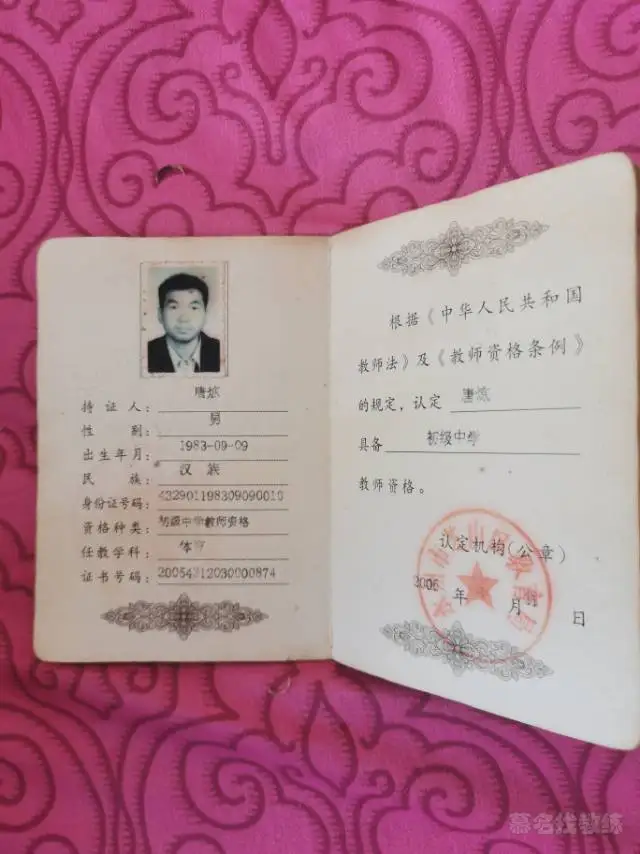 持证人：唐炫
性别：男
出生年月：1983-09-09
民族：汉族
身份证号码：432901198309090010
资格种类：初级中学教师资格
任教学科：体育
证书号码：20054312030000874
根据《中华人民共和国
教师法》及《教师资格条例》
的规定，认定 唐炫
具备 初级中学
教师资格。
认定机构(公章)
年 月 日
慕名找教练